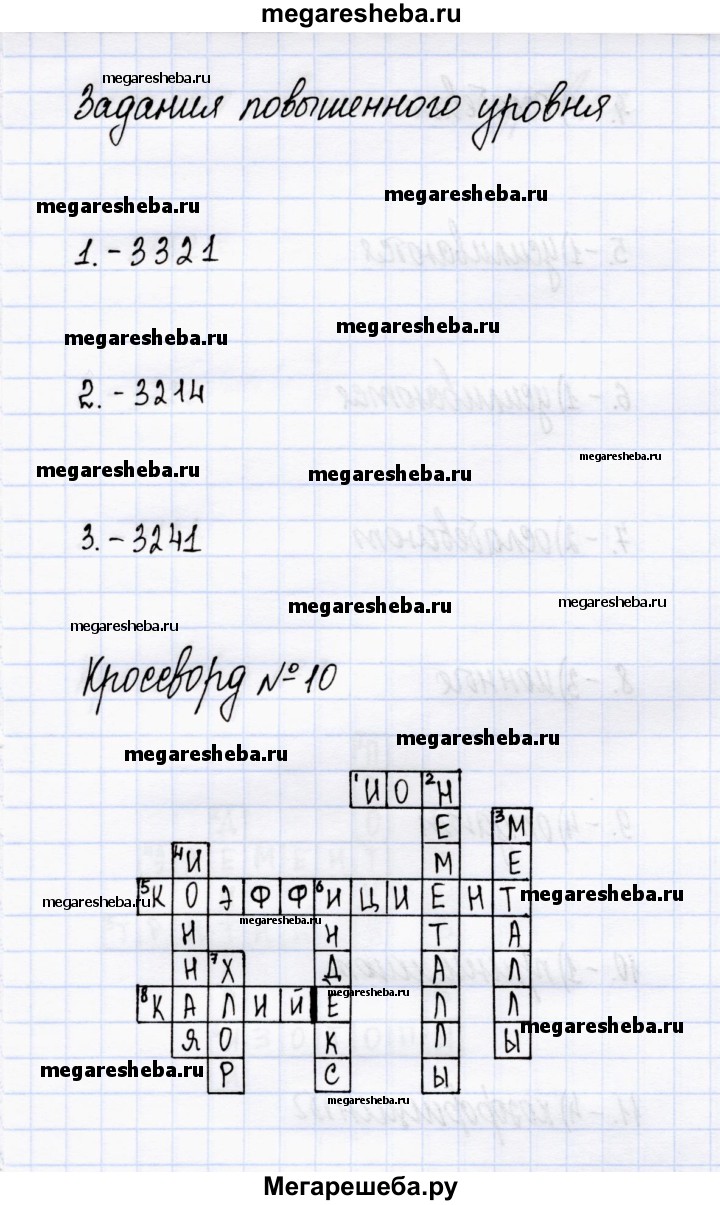 megaresheba.ru
megaresheba.ru
Задания повышенного уровня
megaresheba.ru
megaresheba.ru
1. - 3321
megaresheba.ru
megaresheba.ru
2. - 3214
megaresheba.ru
megaresheba.ru
megaresheba.ru
3. - 3241
megaresheba.ru
megaresheba.ru
megaresheba.ru
Кроссворд № 10
megaresheba.ru
megaresheba.ru
1 И О 2 Н
Е 3 М
4 И М Е
5 К О Э Ф Ф 6 И Ц И Е Н Т
megaresheba.ru
megaresheba.ru
megaresheba.ru
Н Н Т А
Н 7 Х Д А Л
8 К А Л И Й Е Л Л
megaresheba.ru
Я О К Л Ы
megaresheba.ru
Р С Ы
megaresheba.ru
megaresheba.ru
Мегарешеба.ру